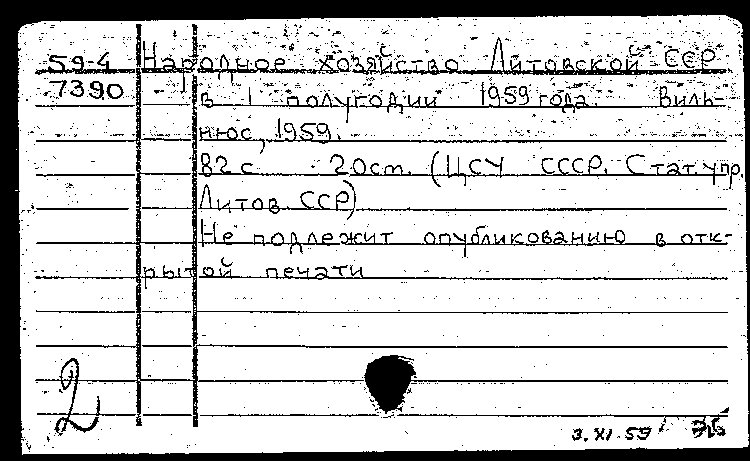 59-4 Народное хозяйство Литовской ССР
7390 в 1 полугодии 1959 года. Виль-
нюс, 1959.
82 с. 20 см. (ЦСУ СССР. Стат. упр.
Литов. ССР)
Не подлежит опубликованию в отк-
рытой печати
2
3.XI.59